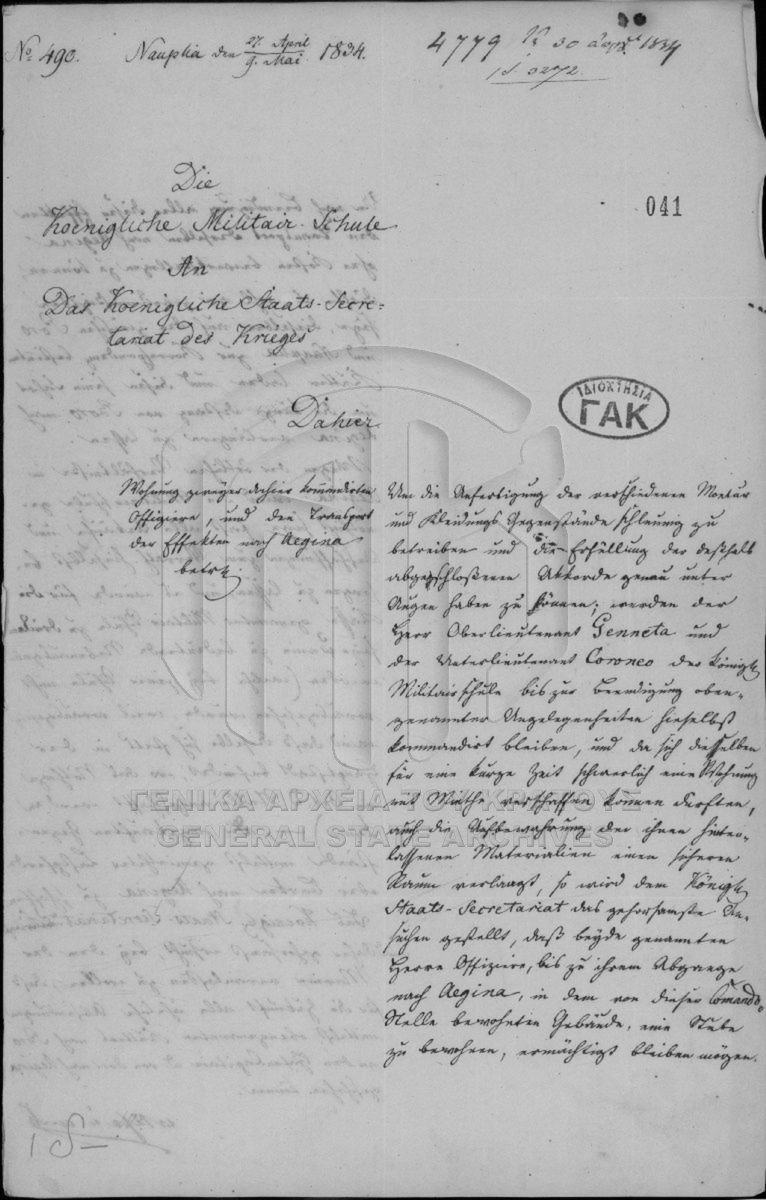 No 490. Nauplia den 27. April / 9. Mai 1834.
4779 30 1834
3272
041
Die
Koenigliche Militair-Schule
An
Das Koenigliche Staats-Secre-
tariat des Krieges
Dahier
ΙΔΙΟΚΤΗΣΙΑ
ΓΑΚ
Wohnung zweyer dahier kommandirten
Offiziere, und den Transport
der Effekten nach Aegina
betr.
Um die Anfertigung der verschiedenen Montur
und Kleidungs Gegenstände schleunig zu
betreiben und die Erfüllung der deßhalb
abgeschloßenen Akkorde genau unter
Augen haben zu können, werden der
Herr Oberlieutenant Genneta und
der Unterlieutenant Coroneo der Königl
Militairschule bis zur Beendigung oben-
genannter Angelegenheiten hieselbst
kommandirt bleiben, und da sich dieselben
für eine kurze Zeit schwerlich eine Wohnung
mit Miethe verschaffen können dürften,
auch die Aufbewahrung der ihnen hinter-
lassenen Materialien einen sicheren
Raum verlangt, so wird dem Königl
Staats-Secretariat das gehorsamste An-
suchen gestellt, daß beyde genannten
Herrn Offiziere, bis zu ihrem Abgange
nach Aegina, in dem von dieser Comando-
Stelle bewohnten Gebäude, eine Stube
zu bewohnen, ermächtigt bleiben mögen.
ΓΕΝΙΚΑ ΑΡΧΕΙΑ ΤΟΥ ΚΡΑΤΟΥΣ
GENERAL STATE ARCHIVES